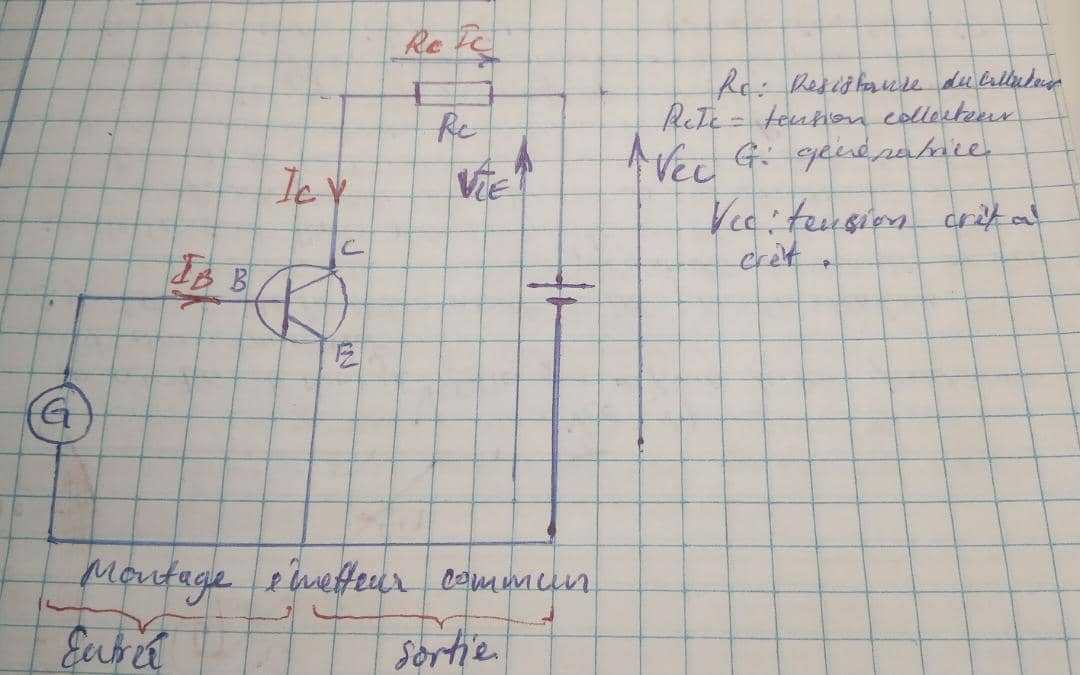 Rc Ic
Rc
Rc: Resistance du collecteur
RcIc = tension collecteur
G: génératrice
Vcc: tension crêt à
crêt.
Vcc
VCE
Ic
C
IB B
E
G
Montage émetteur commun
Entrée
Sortie